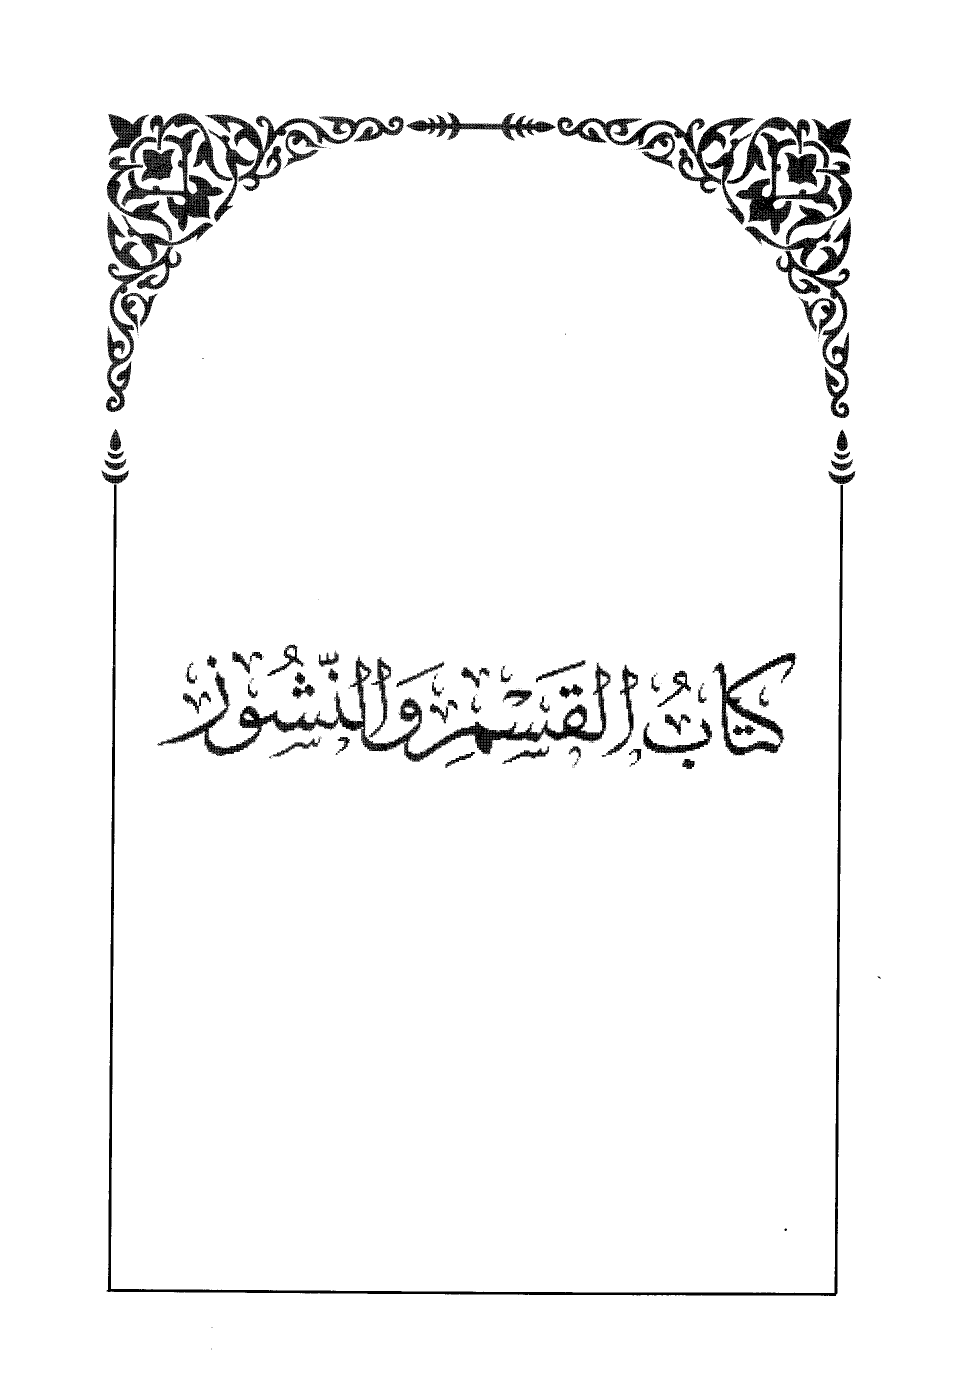 كِتَابُ الْقَسْمِ وَالنُّشُوزِ